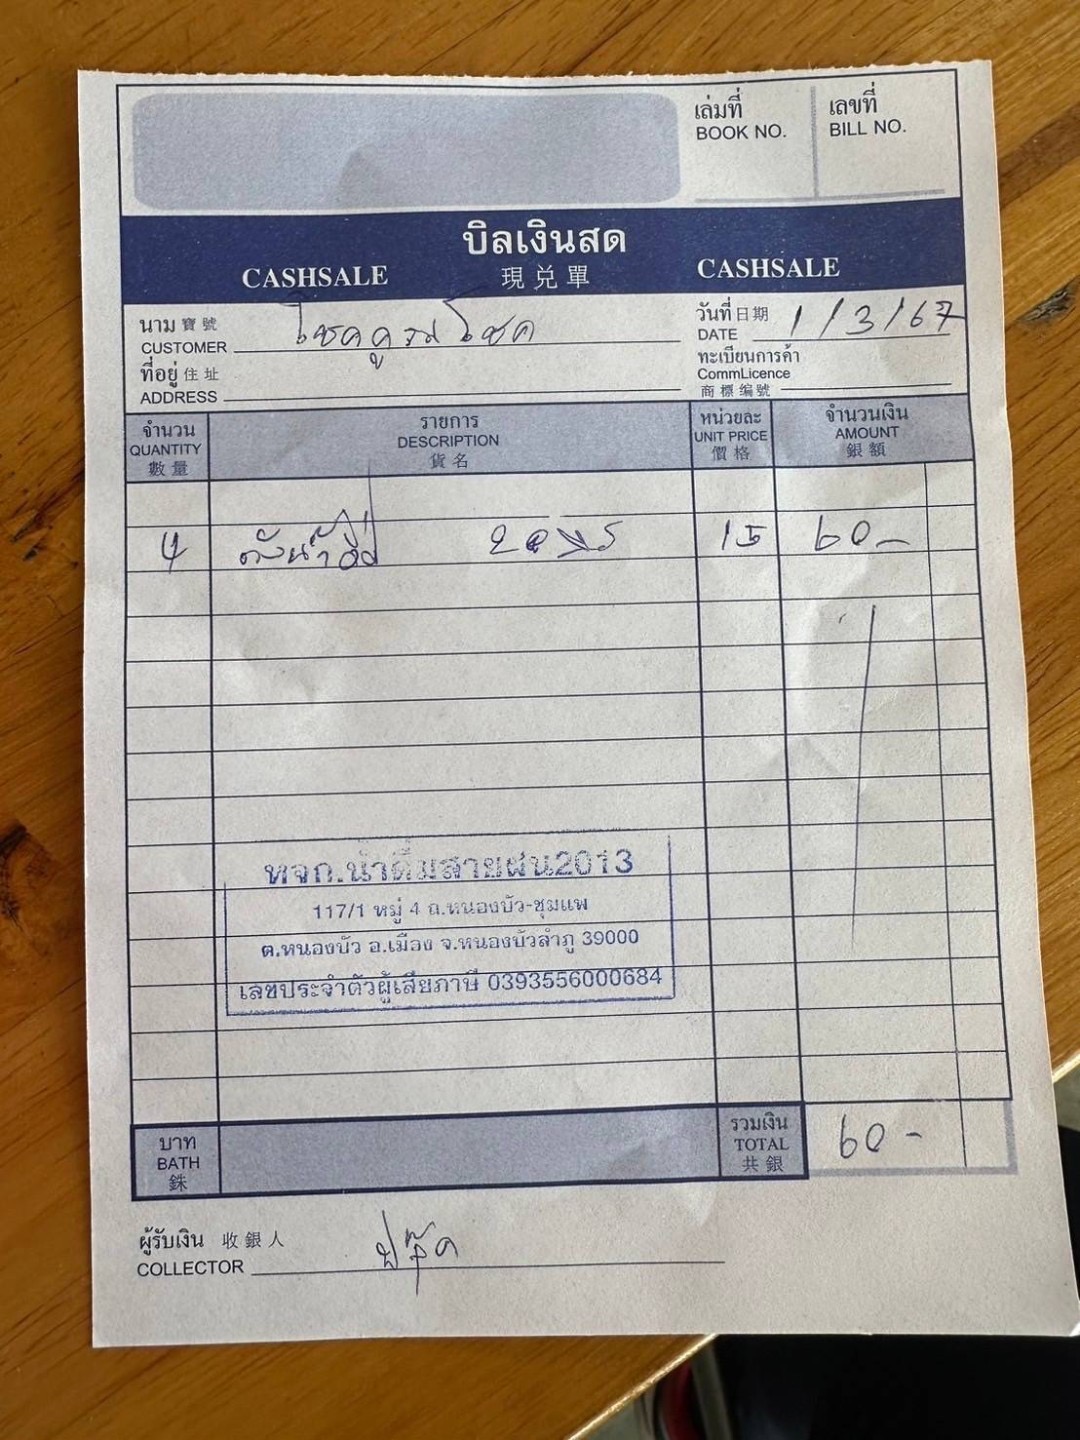 เล่มที่ เลขที่
BOOK NO. BILL NO.
บิลเงินสด
CASHSALE 現兌單 CASHSALE
นาม 寶號 โชคคูณโชค วันที่ 日期 1/3/67
CUSTOMER DATE
ที่อยู่ 住址 ทะเบียนการค้า
ADDRESS CommLicence
商標編號
จำนวน รายการ หน่วยละ จำนวนเงิน
QUANTITY DESCRIPTION UNIT PRICE AMOUNT
數量 貨名 價格 銀額
4 ถังน้ำ 20 15 60-
หจก.น้ำดื่มสายฝน2013
117/1 หมู่ 4 ถ.หนองบัว-ชุมแพ
ต.หนองบัว อ.เมือง จ.หนองบัวลำภู 39000
เลขประจำตัวผู้เสียภาษี 0393556000684
บาท รวมเงิน 60-
BATH TOTAL
銖 共銀
ผู้รับเงิน 收銀人
COLLECTOR